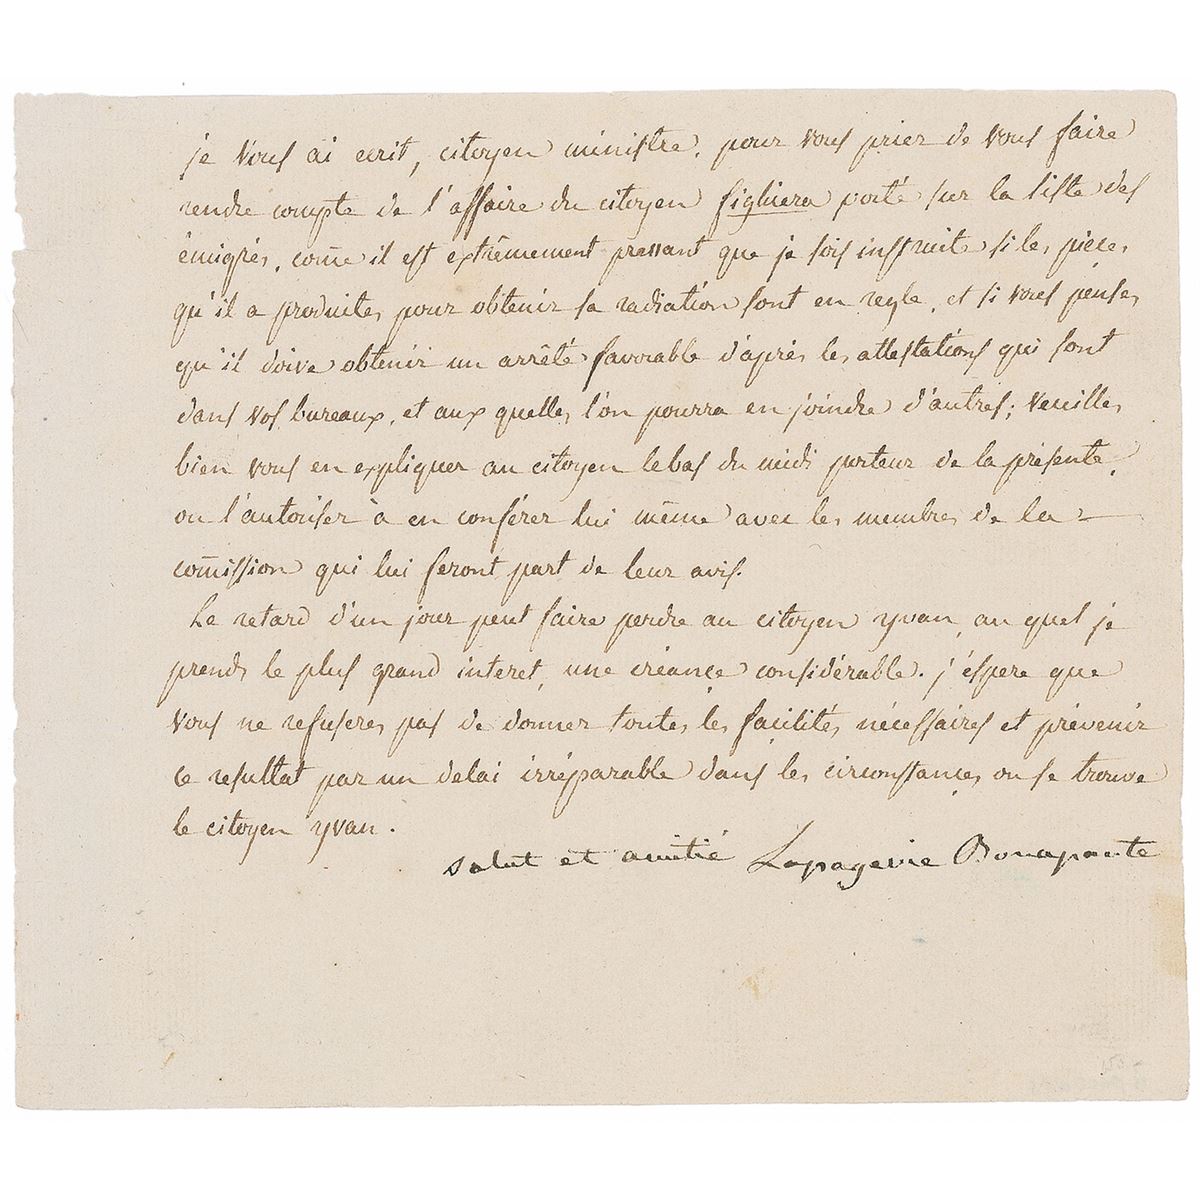 je vous ai ecrit, citoyen ministre, pour vous prier de vous faire
rendre compte de l'affaire du citoyen fighiera porté sur la liste des
émigrés, com̄e il est extrêmement pressant que je sois instruite si les pieces
qu'il a produites pour obtenir sa radiation sont en regle, et si vous pensez
qu'il doive obtenir un arrêté favorable d'après les attestations qui sont
dans vos bureaux, et aux quelles l'on pourra en joindre d'autres; veuillez
bien vous en expliquer au citoyen lebas du midi porteur de la présente,
ou l'autoriser à en conférer lui même avec les membres de la
com̄ission qui lui feront part de leur avis.
Le retard d'un jour peut faire perdre au citoyen yvan, au quel je
prends le plus grand interet, une créance considérable. j'éspere que
vous ne refuserez pas de donner toutes les facilités nécessaires et prévenir
ce resultat par un delai irréparable dans les circonstances ou se trouve
le citoyen yvan.
salut et amitié Lapagerie Bonaparte